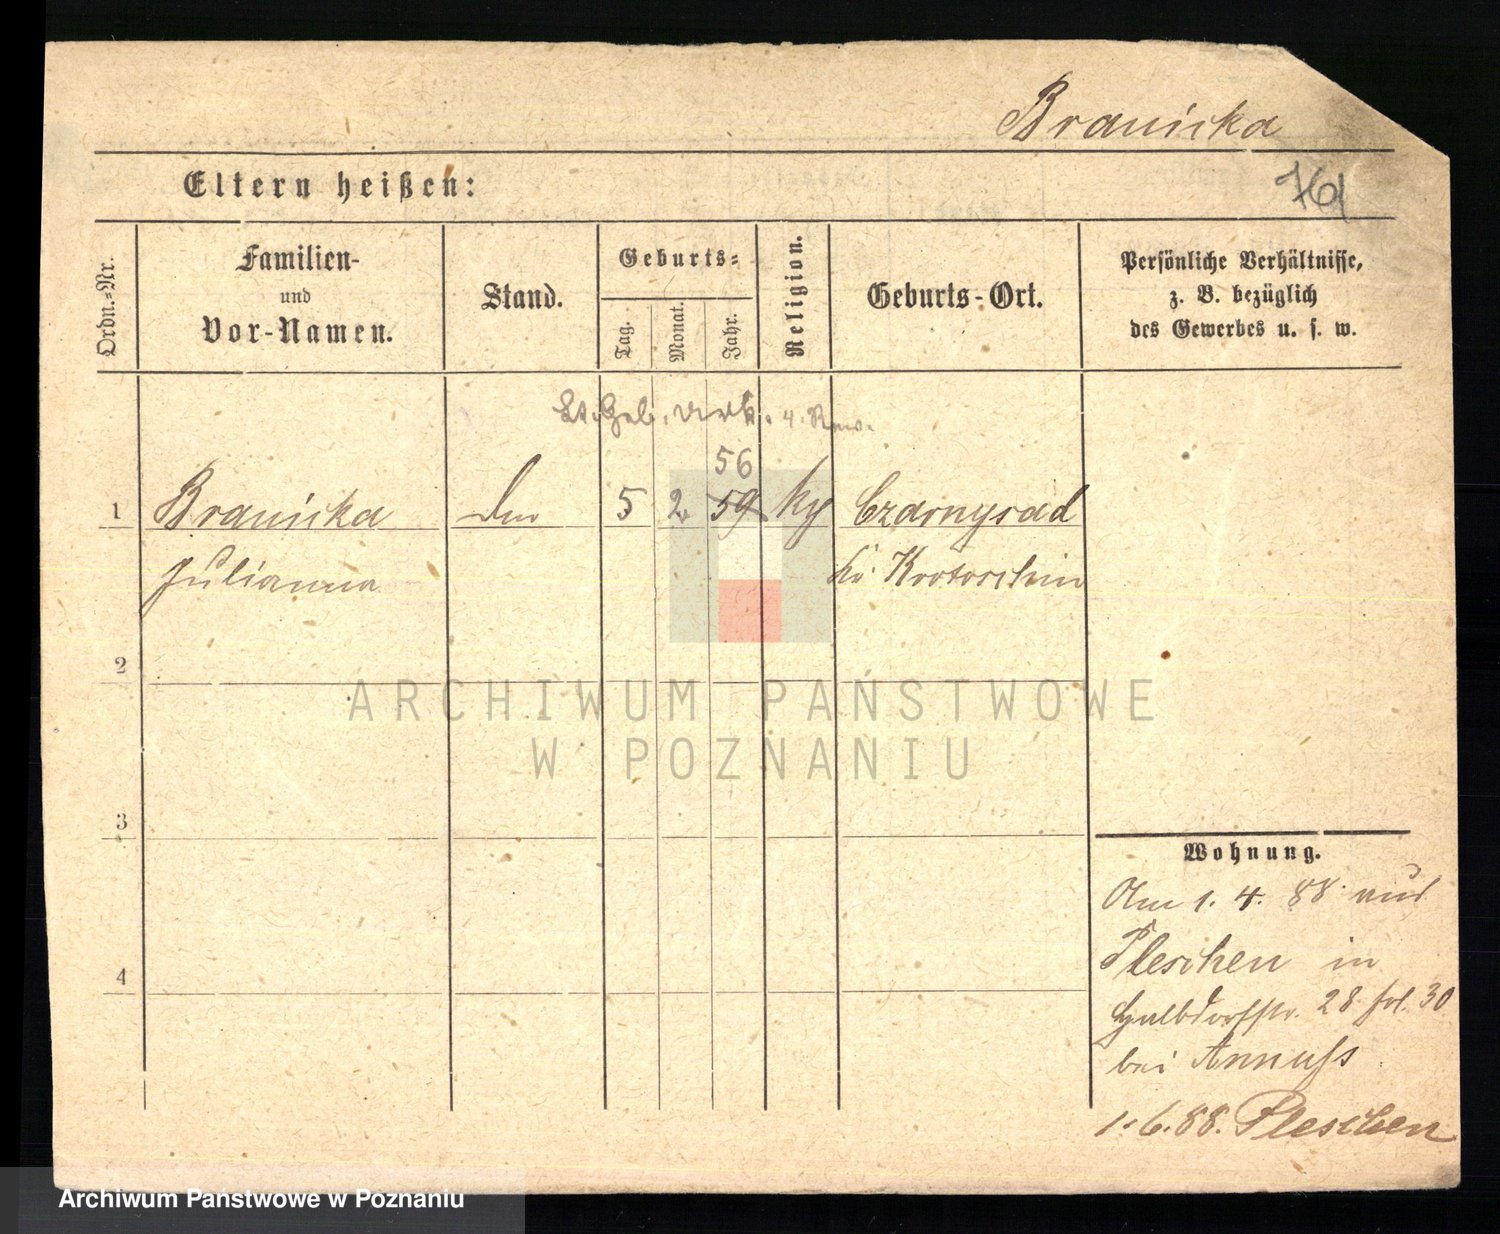 Branicka
Eltern heißen:
761
Ordn.=Nr.
Familien-
und
Vor-Namen.
Stand.
Geburts=
Tag.
Monat.
Jahr.
Religion.
Geburts-Ort.
Persönliche Verhältnisse,
z. B. bezüglich
des Gewerbes u. s. w.
lt. Geb. Urk.
56
1 Branicka 5 2 59 Czarnysad
Julianna Kr. Krotoschin
2
3
4
Wohnung.
Am 1. 4. 88 aus
Pleschen in
Halbdorfstr. 28 fol. 30
bei Annuss
1.6.88. Pleschen
ARCHIWUM PAŃSTWOWE
W POZNANIU
Archiwum Państwowe w Poznaniu